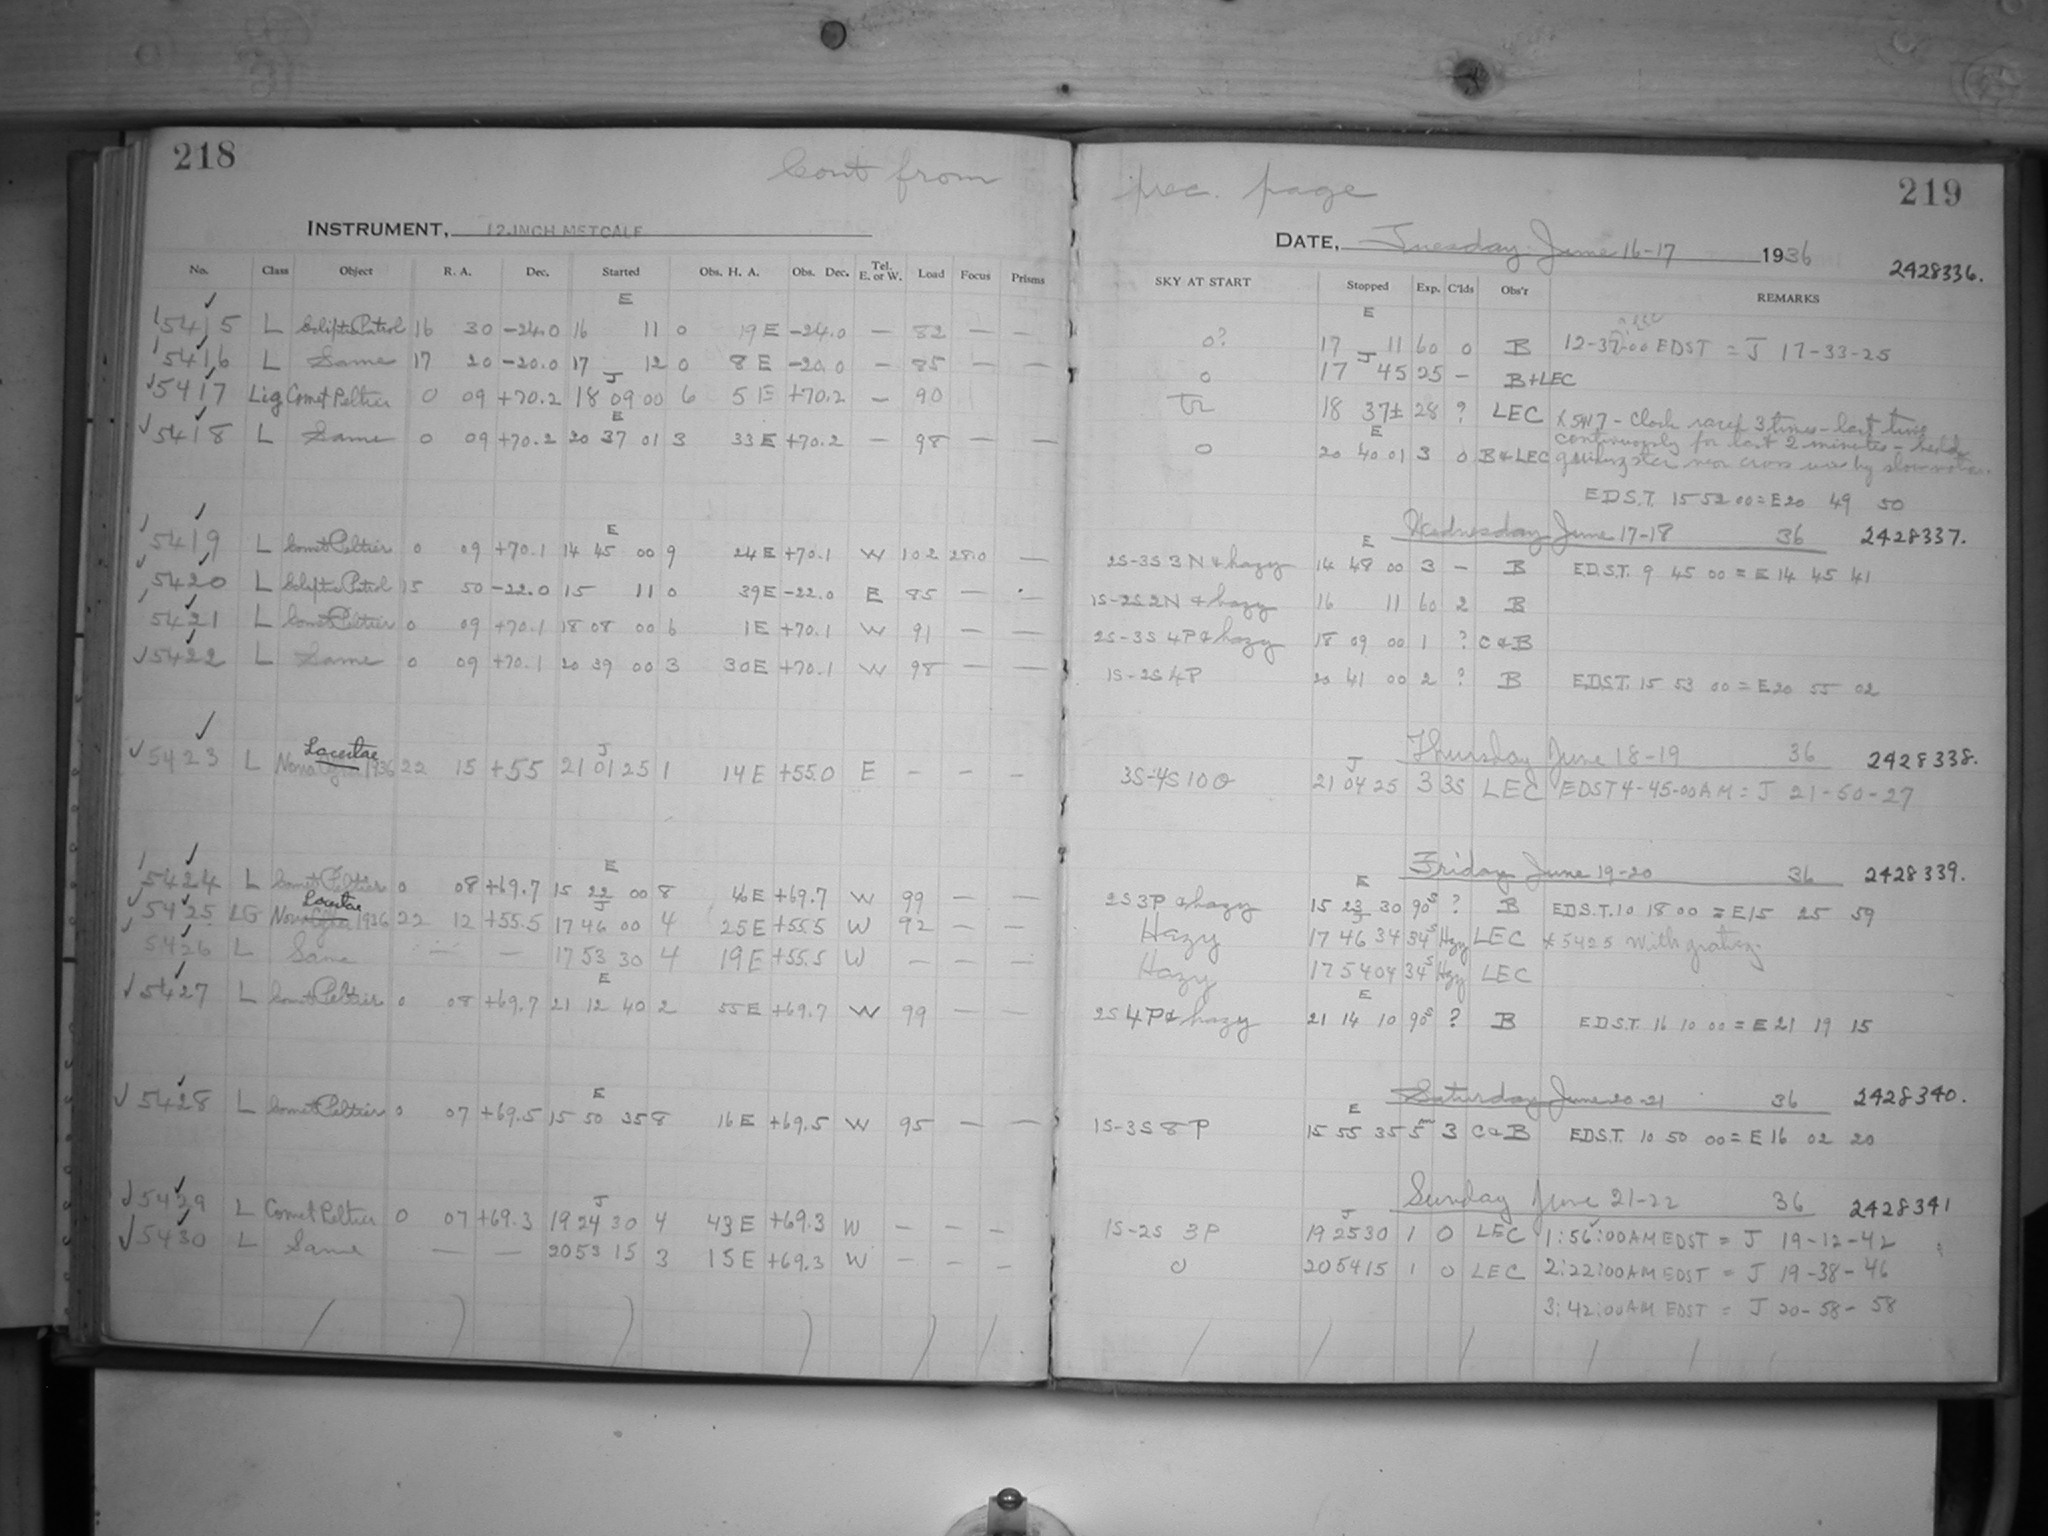 218
Cont from
INSTRUMENT, 12-INCH METCALF
No. Class Object R. A. Dec. Started Obs. H. A. Obs. Dec. Tel. E. or W. Load Focus Prisms
E
15415 L Ecliptic Patrol 16 30 -24.0 16 11 0 19 E -24.0 — 82 — —
15416 L Same 17 20 -20.0 17 12 0 8 E -20.0 — 85 — —
J
5417 Lig Comet Peltier 0 09 +70.2 18 09 00 6 5 E +70.2 — 90
E
5418 L Same 0 09 +70.2 20 37 01 3 33 E +70.2 — 98 — —
E
5419 L Comet Peltier 0 09 +70.1 14 45 00 9 24 E +70.1 W 102 28.0 —
5420 L Ecliptic Patrol 15 50 -22.0 15 11 0 39 E -22.0 E 85 — —
5421 L Comet Peltier 0 09 +70.1 18 08 00 6 1 E +70.1 W 91 — —
5422 L Same 0 09 +70.1 20 39 00 3 30 E +70.1 W 98 — —
Lacertae
J
5423 L Nova 1936 22 15 +55 21 01 25 1 14 E +55.0 E — — —
E
5424 L Comet Peltier 0 08 +69.7 15 22 00 8 46 E +69.7 W 99 — —
Lacertae
J
5425 LG Nova 1936 22 12 +55.5 17 46 00 4 25 E +55.5 W 92 — —
5426 L Same — — 17 53 30 4 19 E +55.5 W — — —
E
5427 L Comet Peltier 0 08 +69.7 21 12 40 2 55 E +69.7 W 99 — —
E
5428 L Comet Peltier 0 07 +69.5 15 50 35 8 16 E +69.5 W 95 — —
J
5429 L Comet Peltier 0 07 +69.3 19 24 30 4 43 E +69.3 W — — —
5430 L Same — — 20 53 15 3 15 E +69.3 W — — —
prec. page
219
DATE, Tuesday June 16-17 1936
2428336.
SKY AT START Stopped Exp. C'lds Obs'r REMARKS
E
0? 17 11 60 0 B 12-37-00 EDST = J 17-33-25
J
0 17 45 25 — B+LEC
Tr 18 37± 28 ? LEC x 5417 - Clock raced 3 times - last time
E
continuously for last 2 minutes - held
0 20 40 01 3 0 B & LEC guiding star near cross wire by slow motion
E.D.S.T. 15 52 00 = E 20 49 50
Wednesday June 17-18 36 2428337.
E
2S-3S 3N & hazy 14 48 00 3 — B E.D.S.T. 9 45 00 = E 14 45 41
1S-2S 2N & hazy 16 11 60 2 B
2S-3S 4P & hazy 18 09 00 1 ? C & B
1S-2S 4P 20 41 00 2 ? B E.D.S.T. 15 53 00 = E 20 55 02
Thursday June 18-19 36 2428338.
J
3S-4S 10 0 21 04 25 3 3S LEC EDST 4-45-00 AM = J 21-50-27
Friday June 19-20 36 2428339.
E
2S 3P & hazy 15 23 30 90s ? B E.D.S.T. 10 18 00 = E 15 25 59
J
Hazy 17 46 34 34s Hzy LEC x 5425 With grating.
Hazy 17 54 04 34s Hzy LEC
E
2S 4P & hazy 21 14 10 90s ? B E.D.S.T. 16 10 00 = E 21 19 15
Saturday June 20-21 36 2428340.
E
1S-3S 8P 15 55 35 5m 3 C & B E.D.S.T. 10 50 00 = E 16 02 20
Sunday June 21-22 36 2428341
J
1S-2S 3P 19 25 30 1 0 LEC 1:56:00 AM EDST = J 19-12-42
0 20 54 15 1 0 LEC 2:22:00 AM EDST = J 19-38-46
3:42:00 AM EDST = J 20-58-58